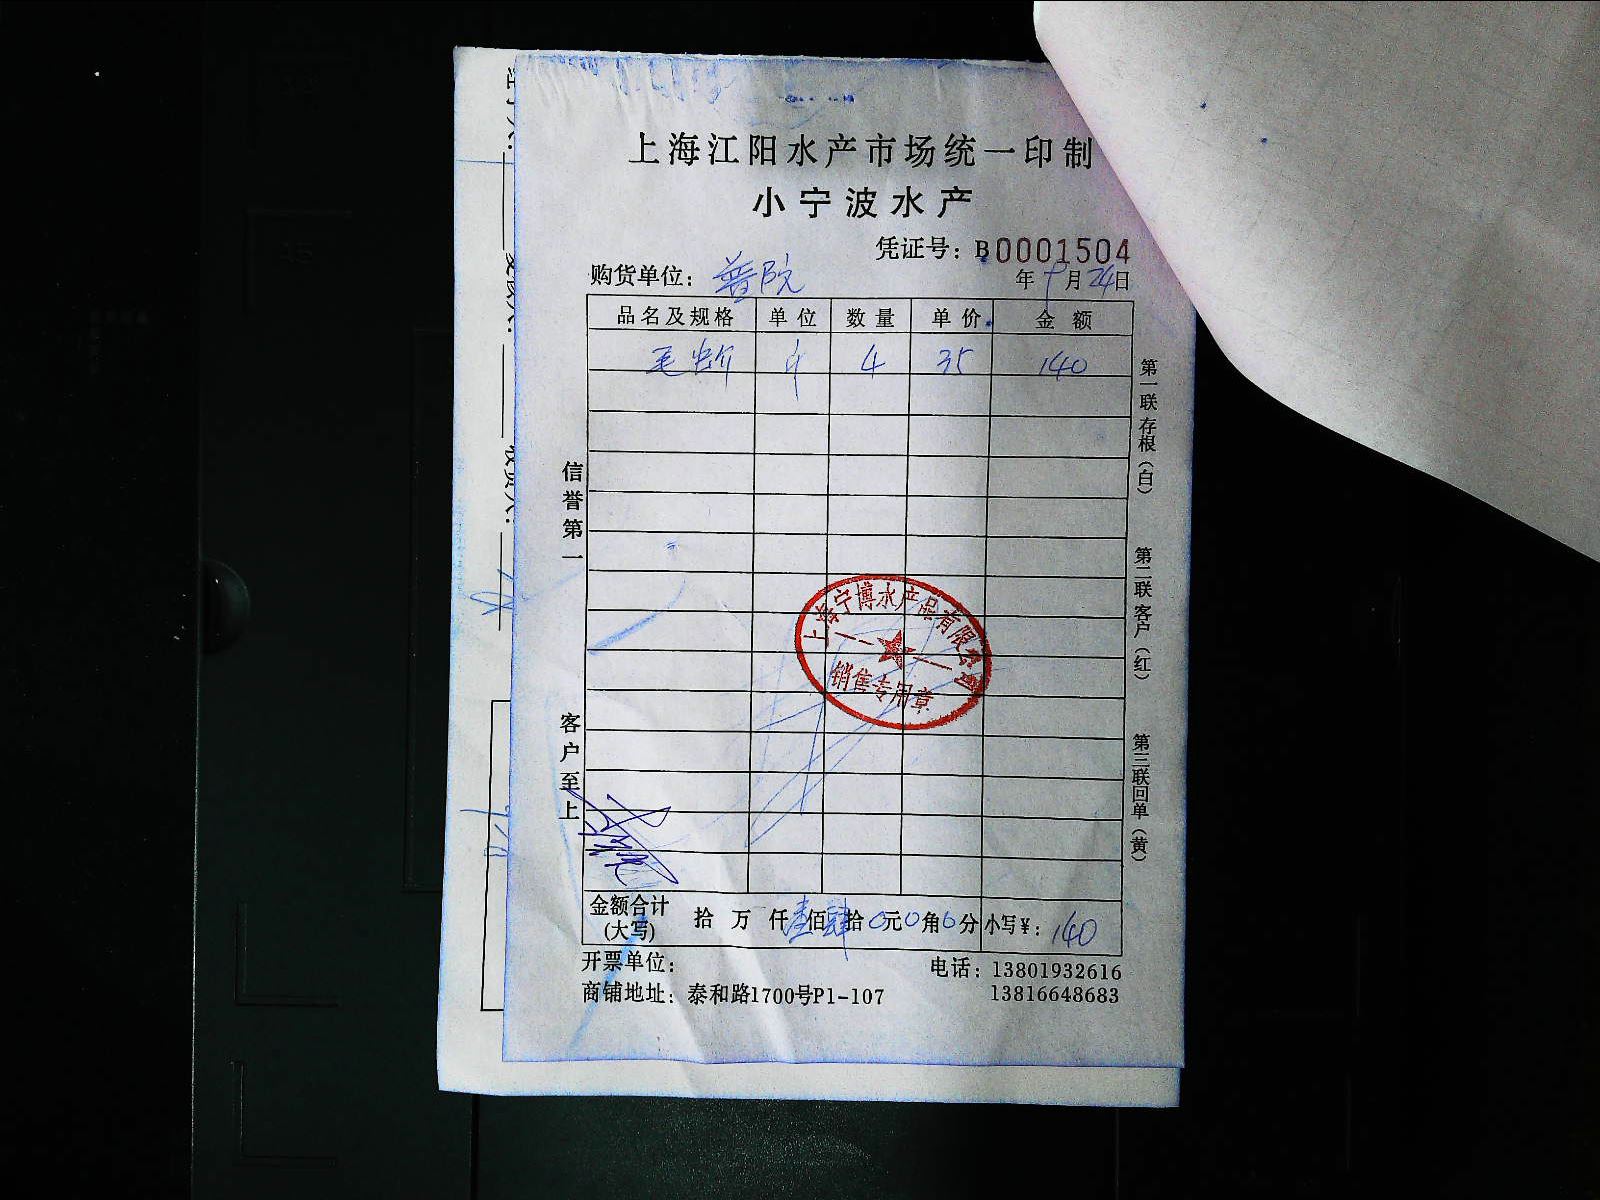 上海江阳水产市场统一印制
小宁波水产
凭证号：B0001504
购货单位：普院 年9月24日
品名及规格 单位 数量 单价 金额
毛 4 35 140
信誉第一
客户至上
第一联存根（白）
第二联客户（红）
第三联回单（黄）
上海宁博水产品有限公司
销售专用章
金额合计（大写） 拾 万 仟壹佰肆拾0元0角0分 小写¥：140
开票单位： 电话：13801932616
商铺地址：泰和路1700号P1-107 13816648683